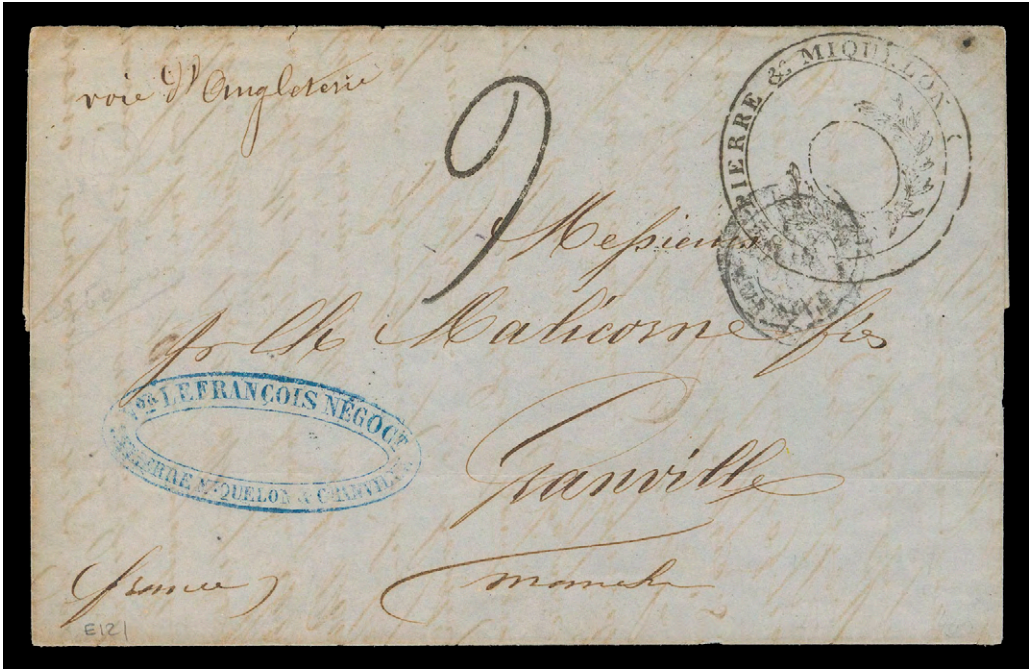 voie d'Angleterre
PIERRE & MIQUELON
9
Messieurs
Malicorne fils
Vve LEFRANÇOIS NÉGOCT
ST PIERRE MIQUELON & GRANVILLE
Granville
france
manche
E121